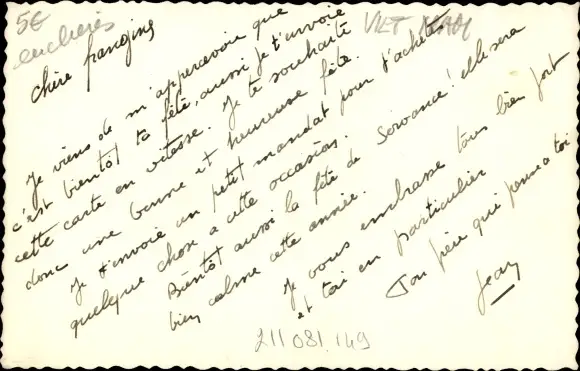 5€
enchères
VIET NAM
Chère frangine
Je viens de m'appercevoir que
c'est bientôt ta fête, aussi je t'envoie
cette carte en vitesse. Je te souhaite
donc une bonne et heureuse fête.
Je t'envoie un petit mandat pour t'acheter
quelque chose a cette occasion.
Bientôt aussi la fête de Servance! elle sera
bien calme cette année.
Je vous embrasse tous bien fort
et toi en particulier
Ton frère qui pense a toi
Jean
211 081 149